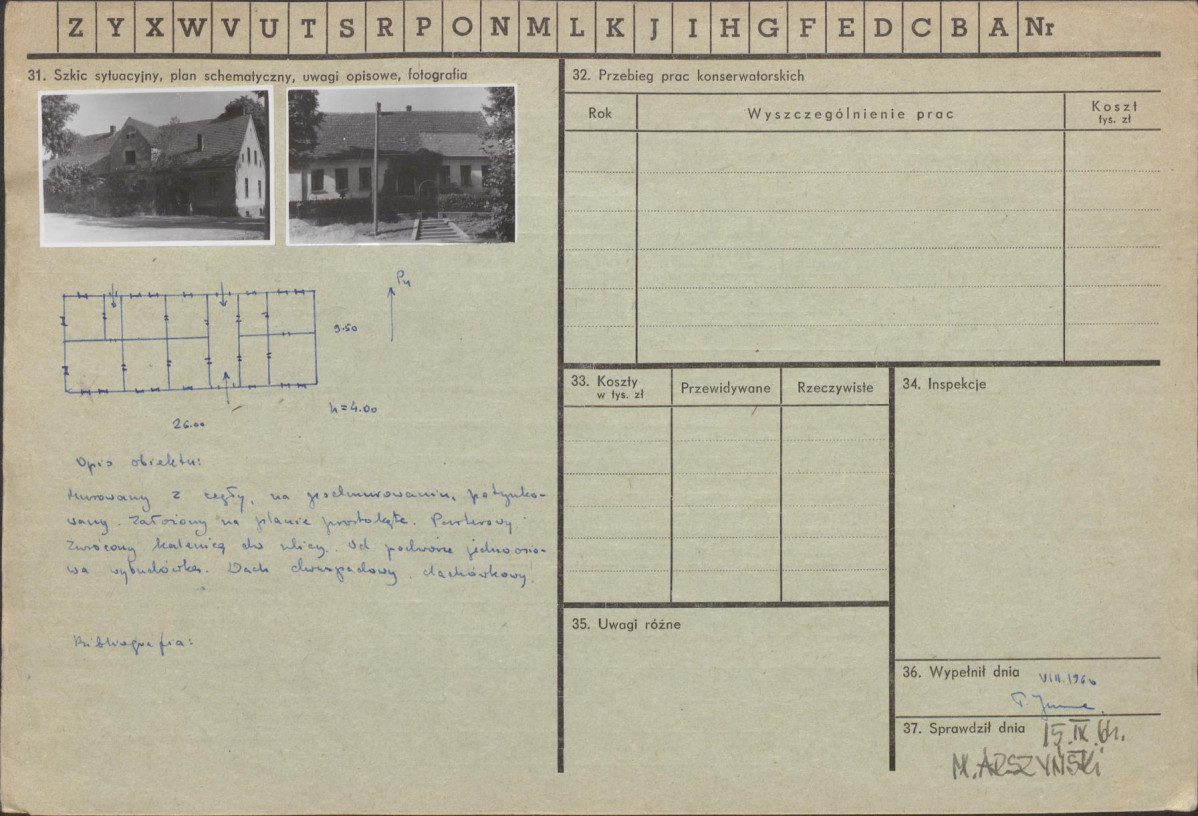 Z Y X W V U T S R P O N M L K J I H G F E D C B A Nr
31. Szkic sytuacyjny, plan schematyczny, uwagi opisowe, fotografia
Pn
9.50
h=4.00
26.00
Opis obiektu:
Murowany z cegły, na podmurowaniu, potynko-
wany. Założony na planie prostokąta. Parterowy.
Zwrócony kalenicą do ulicy. Od podwórza jednoosio-
wa wybudówka. Dach dwuspadowy, dachówkowy.
Bibliografia:
32. Przebieg prac konserwatorskich
Rok
Wyszczególnienie prac
Koszt
tys. zł
33. Koszty
w tys. zł
Przewidywane
Rzeczywiste
34. Inspekcje
35. Uwagi różne
36. Wypełnił dnia
VIII.196
37. Sprawdził dnia 15.IX.61.
M. ARSZYŃSKI